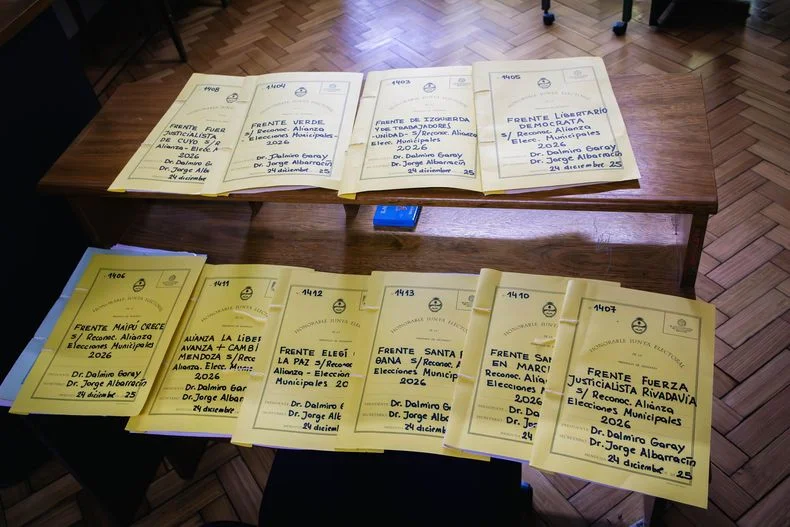 1408
HONORABLE JUNTA
FRENTE FUER
JUSTICIALISTA
DE CUYO S/R
Alianza - Elecc. M
2026
Dr. Dalmiro Ga
Dr. Jorge Alba
24 diciemb
1404
HONORABLE JUNTA ELECTORAL
FRENTE VERDE
s/ Reconoc. Alianza
Elecciones Municipales -
2026
Dr. Dalmiro Garay
Dr. Jorge Albarracín
24 diciembre 25
1403
HONORABLE JUNTA ELECTORAL
FRENTE DE IZQUIERDA
Y DE TRABAJADORES
-UNIDAD- S/Reconoc. Alianza
Elecc. Municipales
2026
Dr. Dalmiro Garay
Dr. Jorge Albarracín
24 diciembre 25
1405
HONORABLE JUNTA ELECTORAL
FRENTE LIBERTARIO
DEMOCRATA
s/ Reconoc. Alianza
Elecc. Municipales
2026
Dr. Dalmiro Garay
Dr. Jorge Albarracín
24 diciembre 25
1406
HONORABLE JUNTA ELECTORAL
FRENTE MAIPÚ CRECE
s/ Reconoc. Alianza
Elecciones Municipales
2026
Dr. Dalmiro Garay
Dr. Jorge Albarracín
24 diciembre 25
1411
HONORABLE JUNTA
ALIANZA LA LIBE
AVANZA + CAMBI
MENDOZA S/Reco
Alianza. Elecc. Mun
2026
Dr. Dalmiro
Dr. Jorge Al
24 diciembr
1412
HONORABLE JUNTA
FRENTE ELEGÍ
LA PAZ S/Recono
Alianza - Elección
Municipales 20
Dr. Dalmiro
Dr. Jorge Alb
24 diciembre
1413
HONORABLE JUNTA ELECTORAL
FRENTE SANTA
GANA s/ Reconoc. A
Elecciones Municip
2026
Dr. Dalmiro Ga
Dr. Jorge Albarr
24 diciembre
1410
HONORABLE JUNTA
FRENTE SAN
EN MARC
Reconoc. Ali
Elecciones M
2026
Dr. Dalmiro
Dr. Jorge Al
24 diciem
1407
HONORABLE JUNTA ELECTORAL
FRENTE FUERZA
JUSTICIALISTA RIVADAVIA
s/ Reconoc. Alianza
Elecciones Municipales
2026
PRESIDENTE Dr. Dalmiro Garay
SECRETARIO Dr. Jorge Albarracín
24 diciembre 25